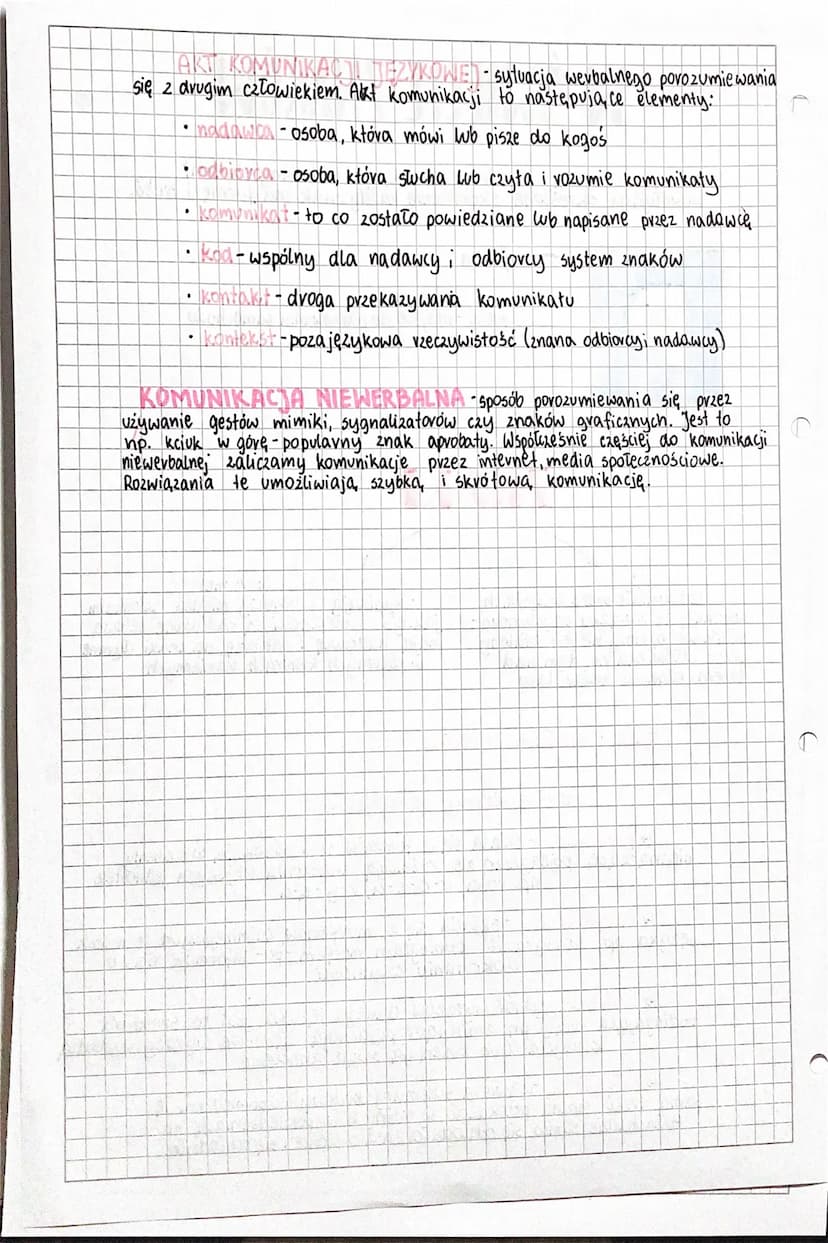 AKT KOMUNIKACJI JĘZYKOWEJ - sytuacja werbalnego porozumiewania
się z drugim człowiekiem. Akt komunikacji to następujące elementy:
• nadawca - osoba, która mówi lub pisze do kogoś
• odbiorca - osoba, która słucha lub czyta i rozumie komunikaty
• komunikat - to co zostało powiedziane lub napisane przez nadawcę
• kod - wspólny dla nadawcy i odbiorcy system znaków
• kontakt - droga przekazywania komunikatu
• kontekst - pozajęzykowa rzeczywistość (znana odbiorcy i nadawcy)
KOMUNIKACJA NIEWERBALNA - sposób porozumiewania się przez
używanie gestów mimiki, sygnalizatorów czy znaków graficznych. Jest to
np. kciuk w górę - popularny znak aprobaty. Współcześnie częściej do komunikacji
niewerbalnej zaliczamy komunikacje przez internet, media społecznościowe.
Rozwiązania te umożliwiają szybką i skrótową komunikację.